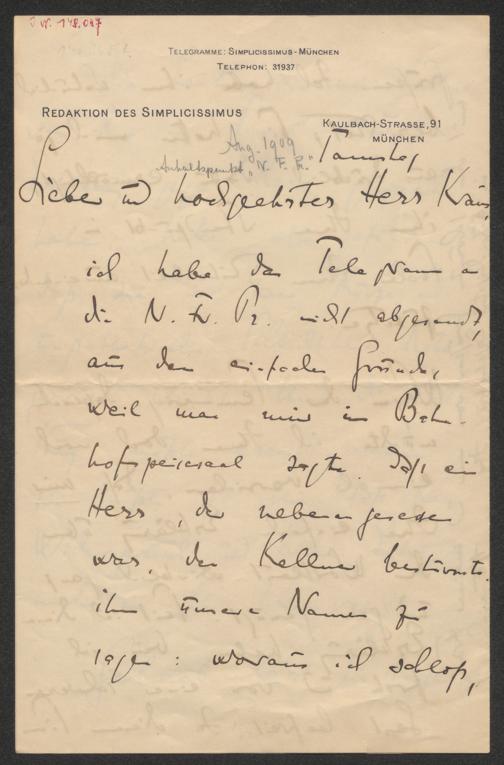 J.N. 148.047
TELEGRAMME: SIMPLICISSIMUS-MÜNCHEN
TELEPHON: 31937
REDAKTION DES SIMPLICISSIMUS
KAULBACH-STRASSE, 91
MÜNCHEN
Aug. 1909
Anhaltspunkt "N. F. P."
Samstag
Lieber und hochgeehrter Herr Kraus,
ich habe das Telegramm an
die N. Fr. Pr. nicht abgesandt,
aus dem einfachen Grunde,
weil man mir im Bahn-
hofspeisesaal sagte, daß ein
Herr, der nebenan gesessen
war, den Kellner bestürmte,
ihm unsere Namen zu
sagen: woraus ich schloß,